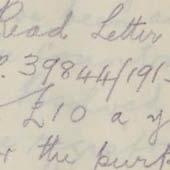 Read Letter
P. 39844/191
£10 a y
the purp